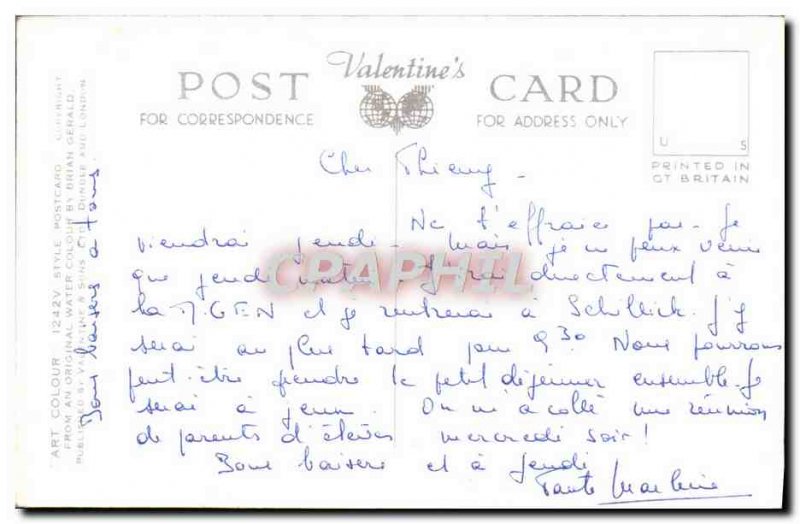 Valentine's
POST CARD
FOR CORRESPONDENCE FOR ADDRESS ONLY
U S
PRINTED IN
GT BRITAIN
Cher Thierry -
Ne t'effraie pas. Je
viendrai jeudi - Mais je ne peux venir
que jeudi matin. J'irai directement à
la M.GEN et je rentrerai à Schillick. J'y
serai au plus tard pour 9 30 Nous pourrons
peut-être prendre le petit déjeuner ensemble. Je
serai à jeun. On m'a collé une réunion
de parents d'élèves mercredi soir!
Bons baisers et à jeudi
Tante
Bons baisers à tous.
"ART COLOUR" 1242V. STYLE POSTCARD COPYRIGHT
FROM AN ORIGINAL WATER COLOUR BY BRIAN GERALD
PUBLISHED BY VALENTINE & SONS, LTD., DUNDEE AND LONDON
CPAPHIL